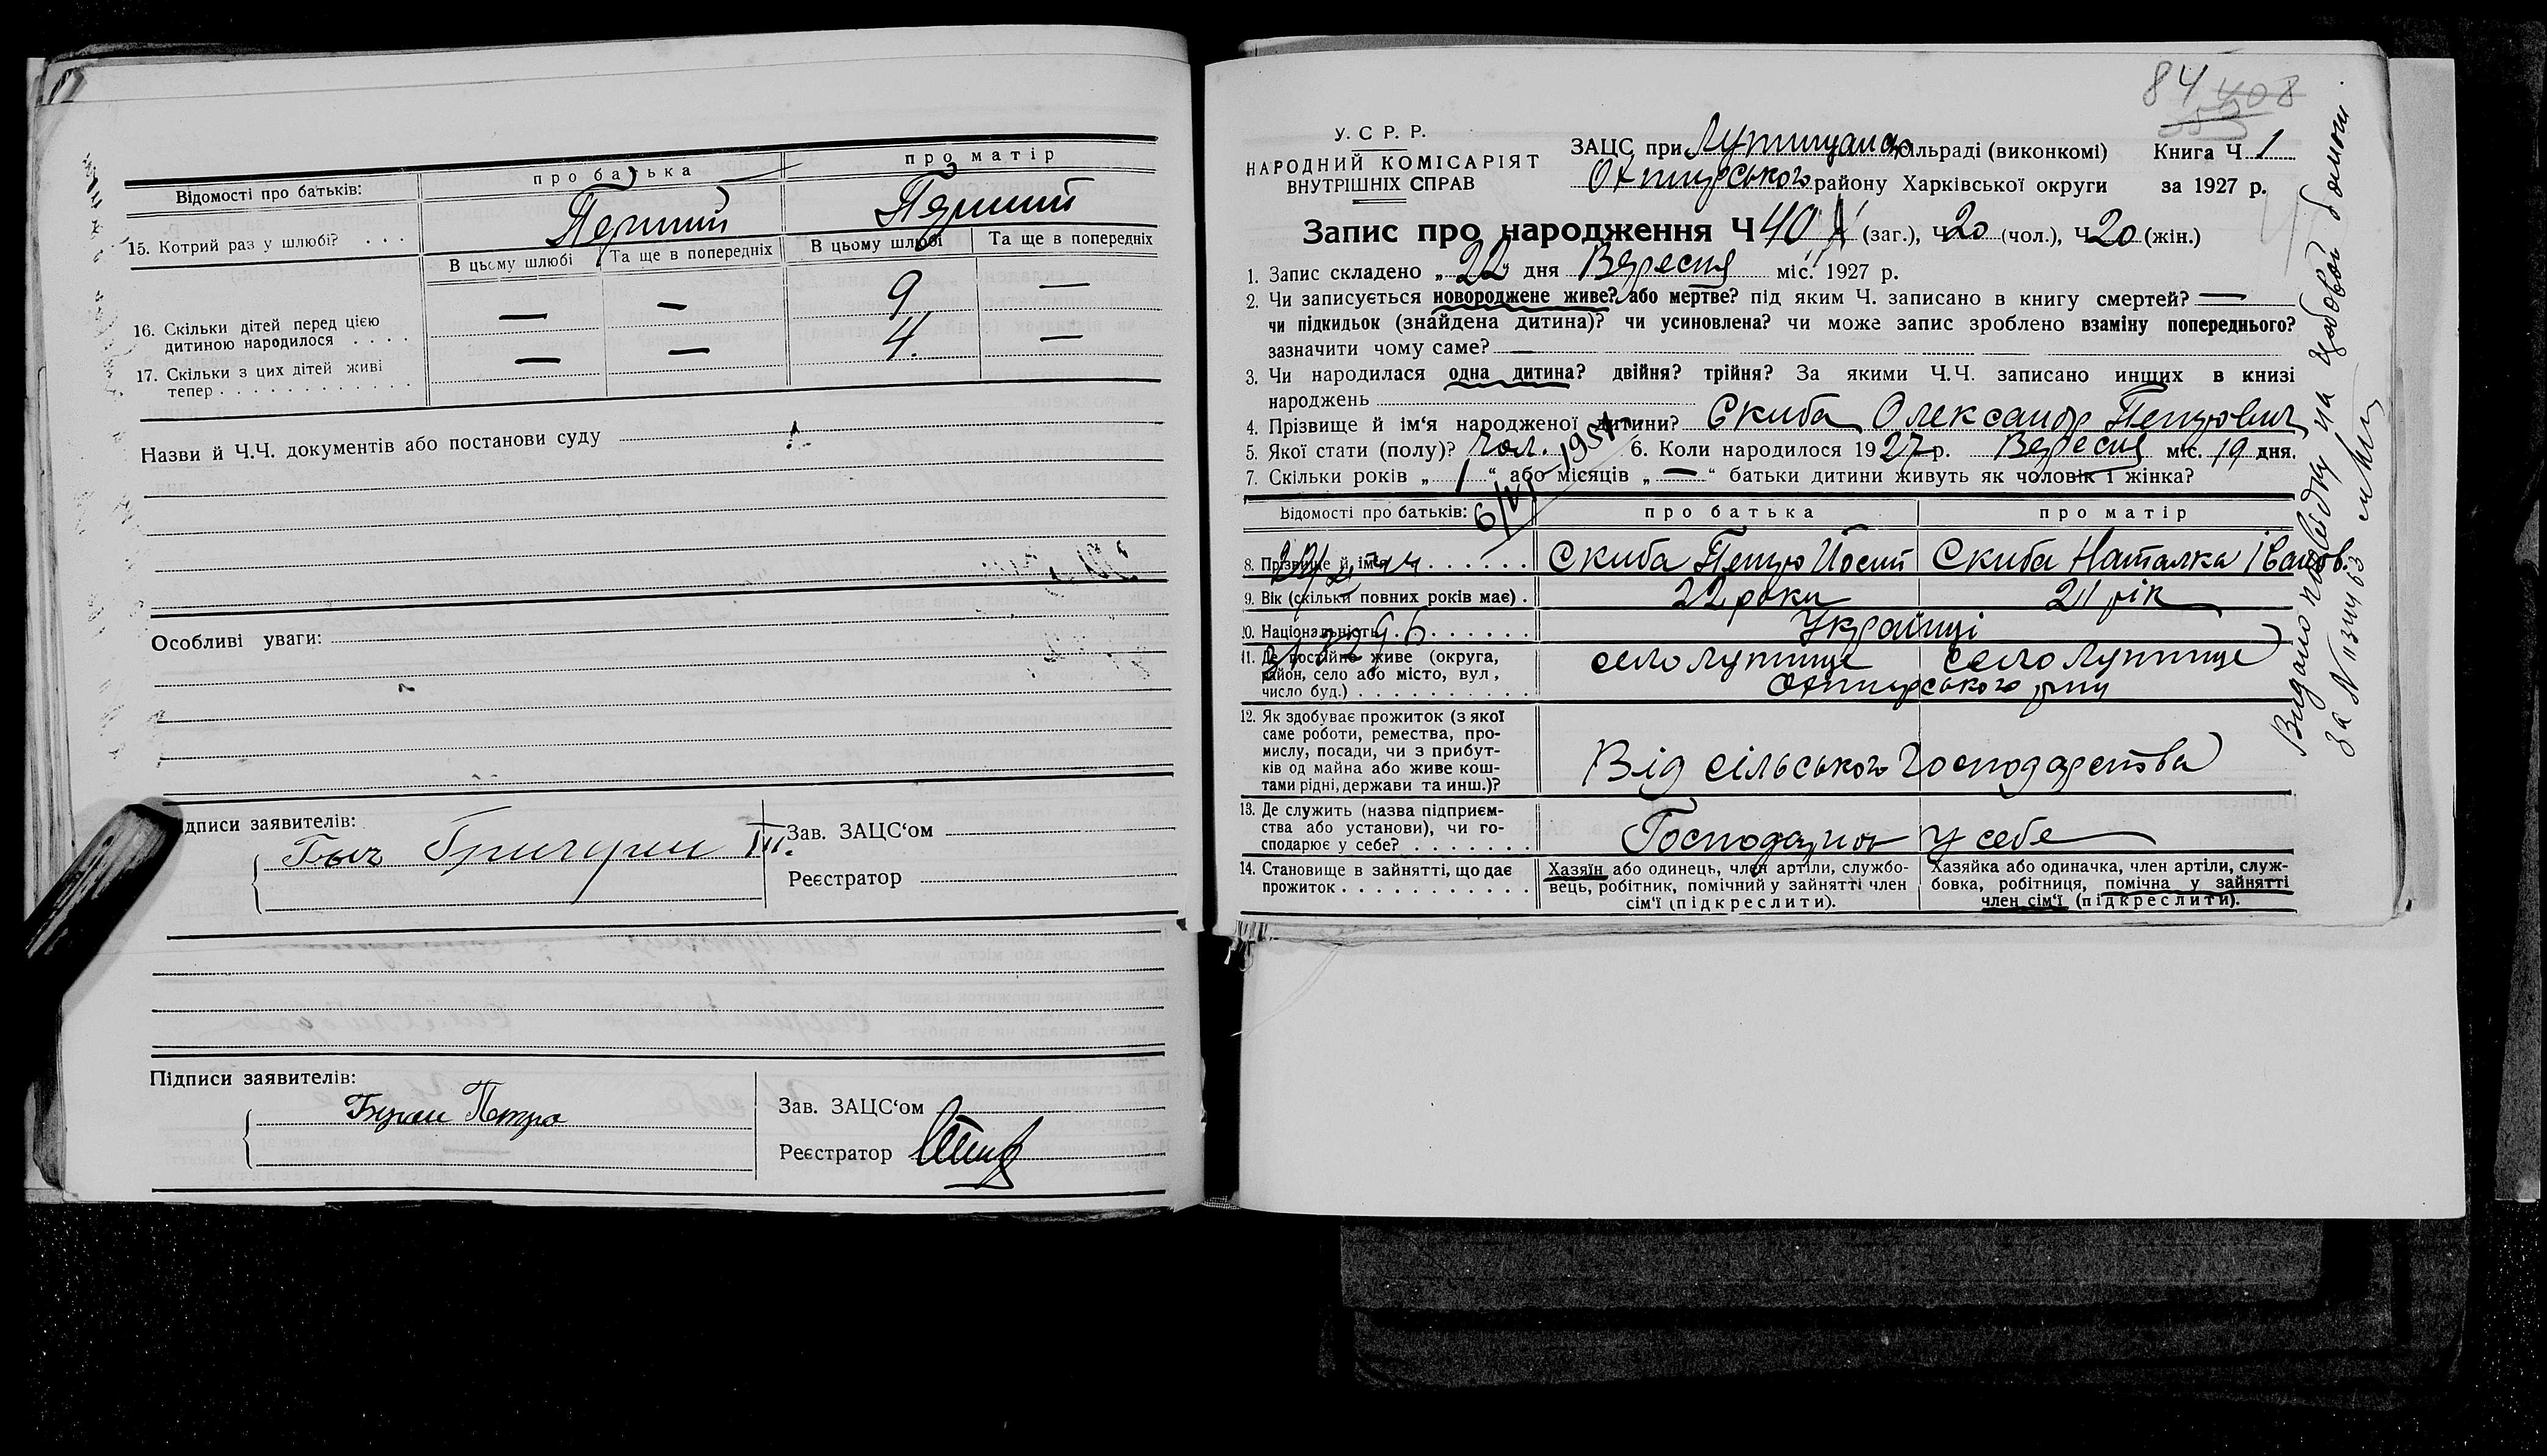 Відомости про батьків:
про батька
про матір
15. Котрий раз у шлюбі? . . .
Перший
Перший
В цьому шлюбі
Та ще в попередніх
В цьому шлюбі
Та ще в попередніх
16. Скільки дітей перед цією
дитиною народилося . . . .
— — 9 —
17. Скільки з цих дітей живі
тепер . . . . . . . . . . . .
— — 4. —
Назви й Ч.Ч. документів або постанови суду
Особливі уваги:
дписи заявителів:
Григорий
Зав. ЗАЦС‘ом
Реєстратор
Підписи заявителів:
Петро
Зав. ЗАЦС‘ом
Реєстратор
84 408
У. С Р. Р.
НАРОДНИЙ КОМІСАРІЯТ
ВНУТРІШНІХ СПРАВ
ЗАЦС при Лутищанс сільраді (виконкомі)
Охтирського району Харківської округи
Книга Ч 1
за 1927 р.
Запис про народження Ч 40 (заг.), Ч 20 (чол.), Ч 20 (жін.)
1. Запис складено „ 22 „ дня Вересня міс. 1927 р.
2. Чи записується новороджене живе? або мертве? під яким Ч. записано в книгу смертей? —
чи підкидьок (знайдена дитина)? чи усиновлена? чи може запис зроблено взаміну попереднього?
зазначити чому саме? —
3. Чи народилася одна дитина? двійня? трійня? За якими Ч.Ч. записано инших в книзі
народжень
4. Прізвище й ім‘я народженої дитини? Скиба Олександр Петрович
5. Якої стати (полу)? Чол. 6. Коли народилося 1927 р. Вересня міс. 19 дня.
7. Скільки років „ 1 “ або місяців „ — “ батьки дитини живуть як чоловік і жінка?
Відомості про батьків:
про батька
про матір
8. Прізвище й ім‘я . . . . . .
Скиба Петро Йосип
Скиба Наталка Іванов.
9. Вік (скільки повних років має) .
22 роки
21 рік
10. Національність . . . . . .
Українці
11. Де постійно живе (округа,
район, село або місто, вул,
число буд.) . . . . . . . . . .
село Лутище
село Лутище
Охтирського р-ну
12. Як здобуває прожиток (з якої
саме роботи, ремества, про-
мислу, посади, чи з прибут-
ків од майна або живе кош-
тами рідні, держави та инш.)?
Від сільського господарства
13. Де служить (назва підприєм-
ства або установи), чи го-
сподарює у себе? . . . . . . .
у себе
14. Становище в зайнятті, що дає
прожиток . . . . . . . . . . . .
Хазяїн або одинець, член артіли, службо-
вець, робітник, помічний у зайнятті член
сім‘ї (підкреслити).
Хазяйка або одиначка, член артіли, служ-
бовка, робітниця, помічна у зайнятті
член сім‘ї (підкреслити).